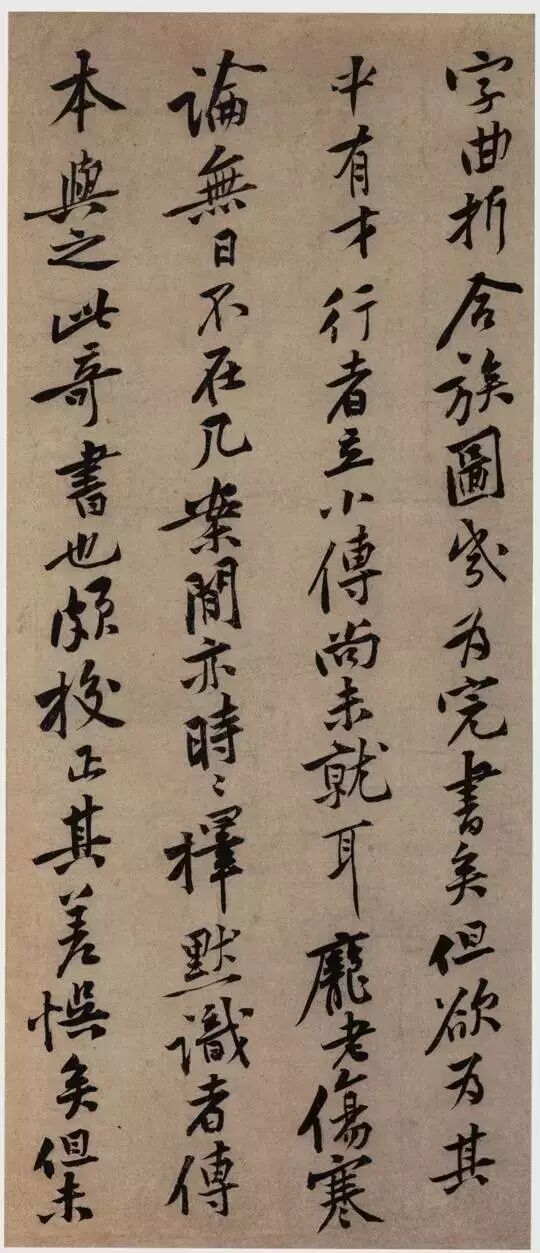 字曲折合族圖幾為完書矣但欲為其
中有才行者立小傳尚未就耳龐老傷寒
論無日不在几案間亦時〻擇默識者傳
本與之此奇書也頗校正其差悞矣但未